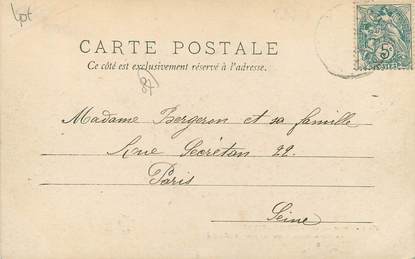 Lot
CARTE POSTALE
Ce côté est exclusivement réservé à l'adresse.
Madame Bergeron et sa famille
Rue Secrétan 22.
Paris
Seine
5c